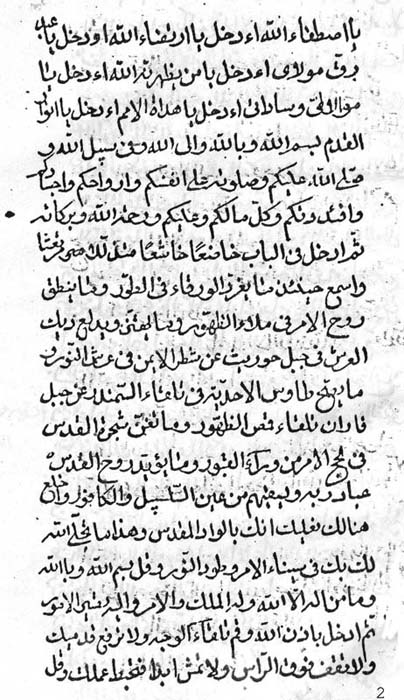 يا اصطفاء الله ءادخل يا ارتضاء الله ءادخل يا
برق مولای ءادخل يا من يظهره الله ءادخل يا
موالی وساداتی ءادخل يا هداة الامم ءادخل يا انوار
القدم بسم الله وبالله والی الله وفی سبيل الله و
صلی الله عليكم وصلوته علی انفسكم وارواحكم واجسادكم
وافئدتكم وكل مالكم وعليكم ورحمة الله وبركاته
ثم ادخل فی الباب خاضعًا خاشعًا متذللا
واسمع حينئذ ما يغرد الورقاء فی الطور وما ينطق
روح الامر فی ملاء الظهور وما يغنی ديك
العرش فی جبل حوريث عن شطر الايمن فی عرش النور و
ما يهيج طاوس الاحدية فی تلقاء السمندر عن جبل
فاران تلقاء قمص الظهور وما تغنی شجرة القدس
فی لجج الامر من وراء القبور وما يؤيد روح القدس
عباد ربه وليسقيهم من عين السلسبيل والكافور واخلع
هنالك نعليك انك بالواد المقدس وهذا ما تجلی الله
لك بك فی سيناء الامر وطور النور وقل بسم الله وبالله
وما من اله الا الله وله الملك والامر واليه
ثم ادخل باذن الله وقم تلقاء الوجه ولا ترفع قدميك
ولا تقف فوق الراس ولا تمش ابدا فتحبط عملك وقل
2